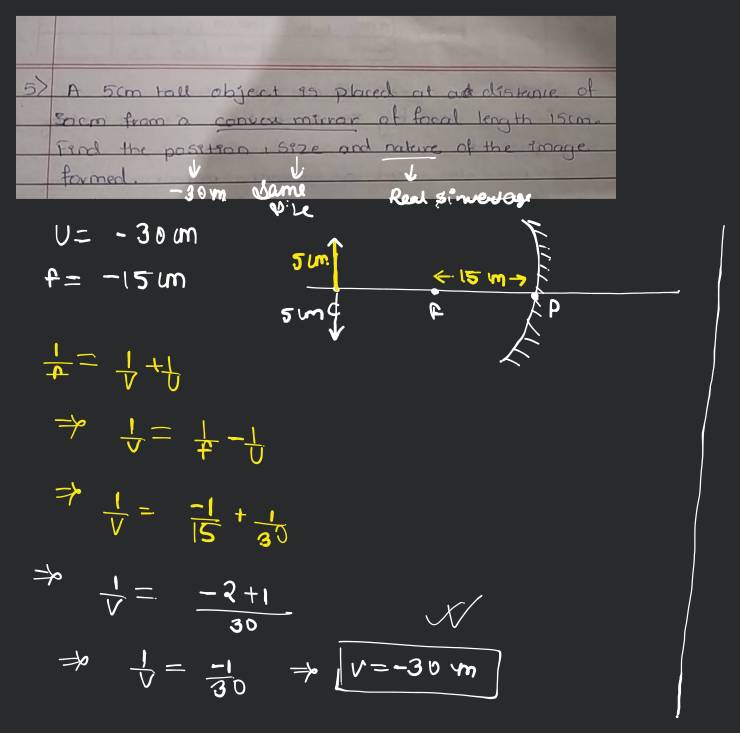 5> A 5cm tall object is placed at a distance of
30cm from a convex mirror of focal length 15cm.
Find the position, size and nature of the image
formed.
-30m Same size Real inverted
U = - 30 cm
f = -15 cm
5 cm
← 15 m →
5 cm C F P
1/f = 1/V + 1/U
⇒ 1/V = 1/f - 1/U
⇒ 1/V = -1/15 + 1/30
⇒ 1/V = -2+1/30
⇒ 1/V = -1/30 ⇒ V = -30 m